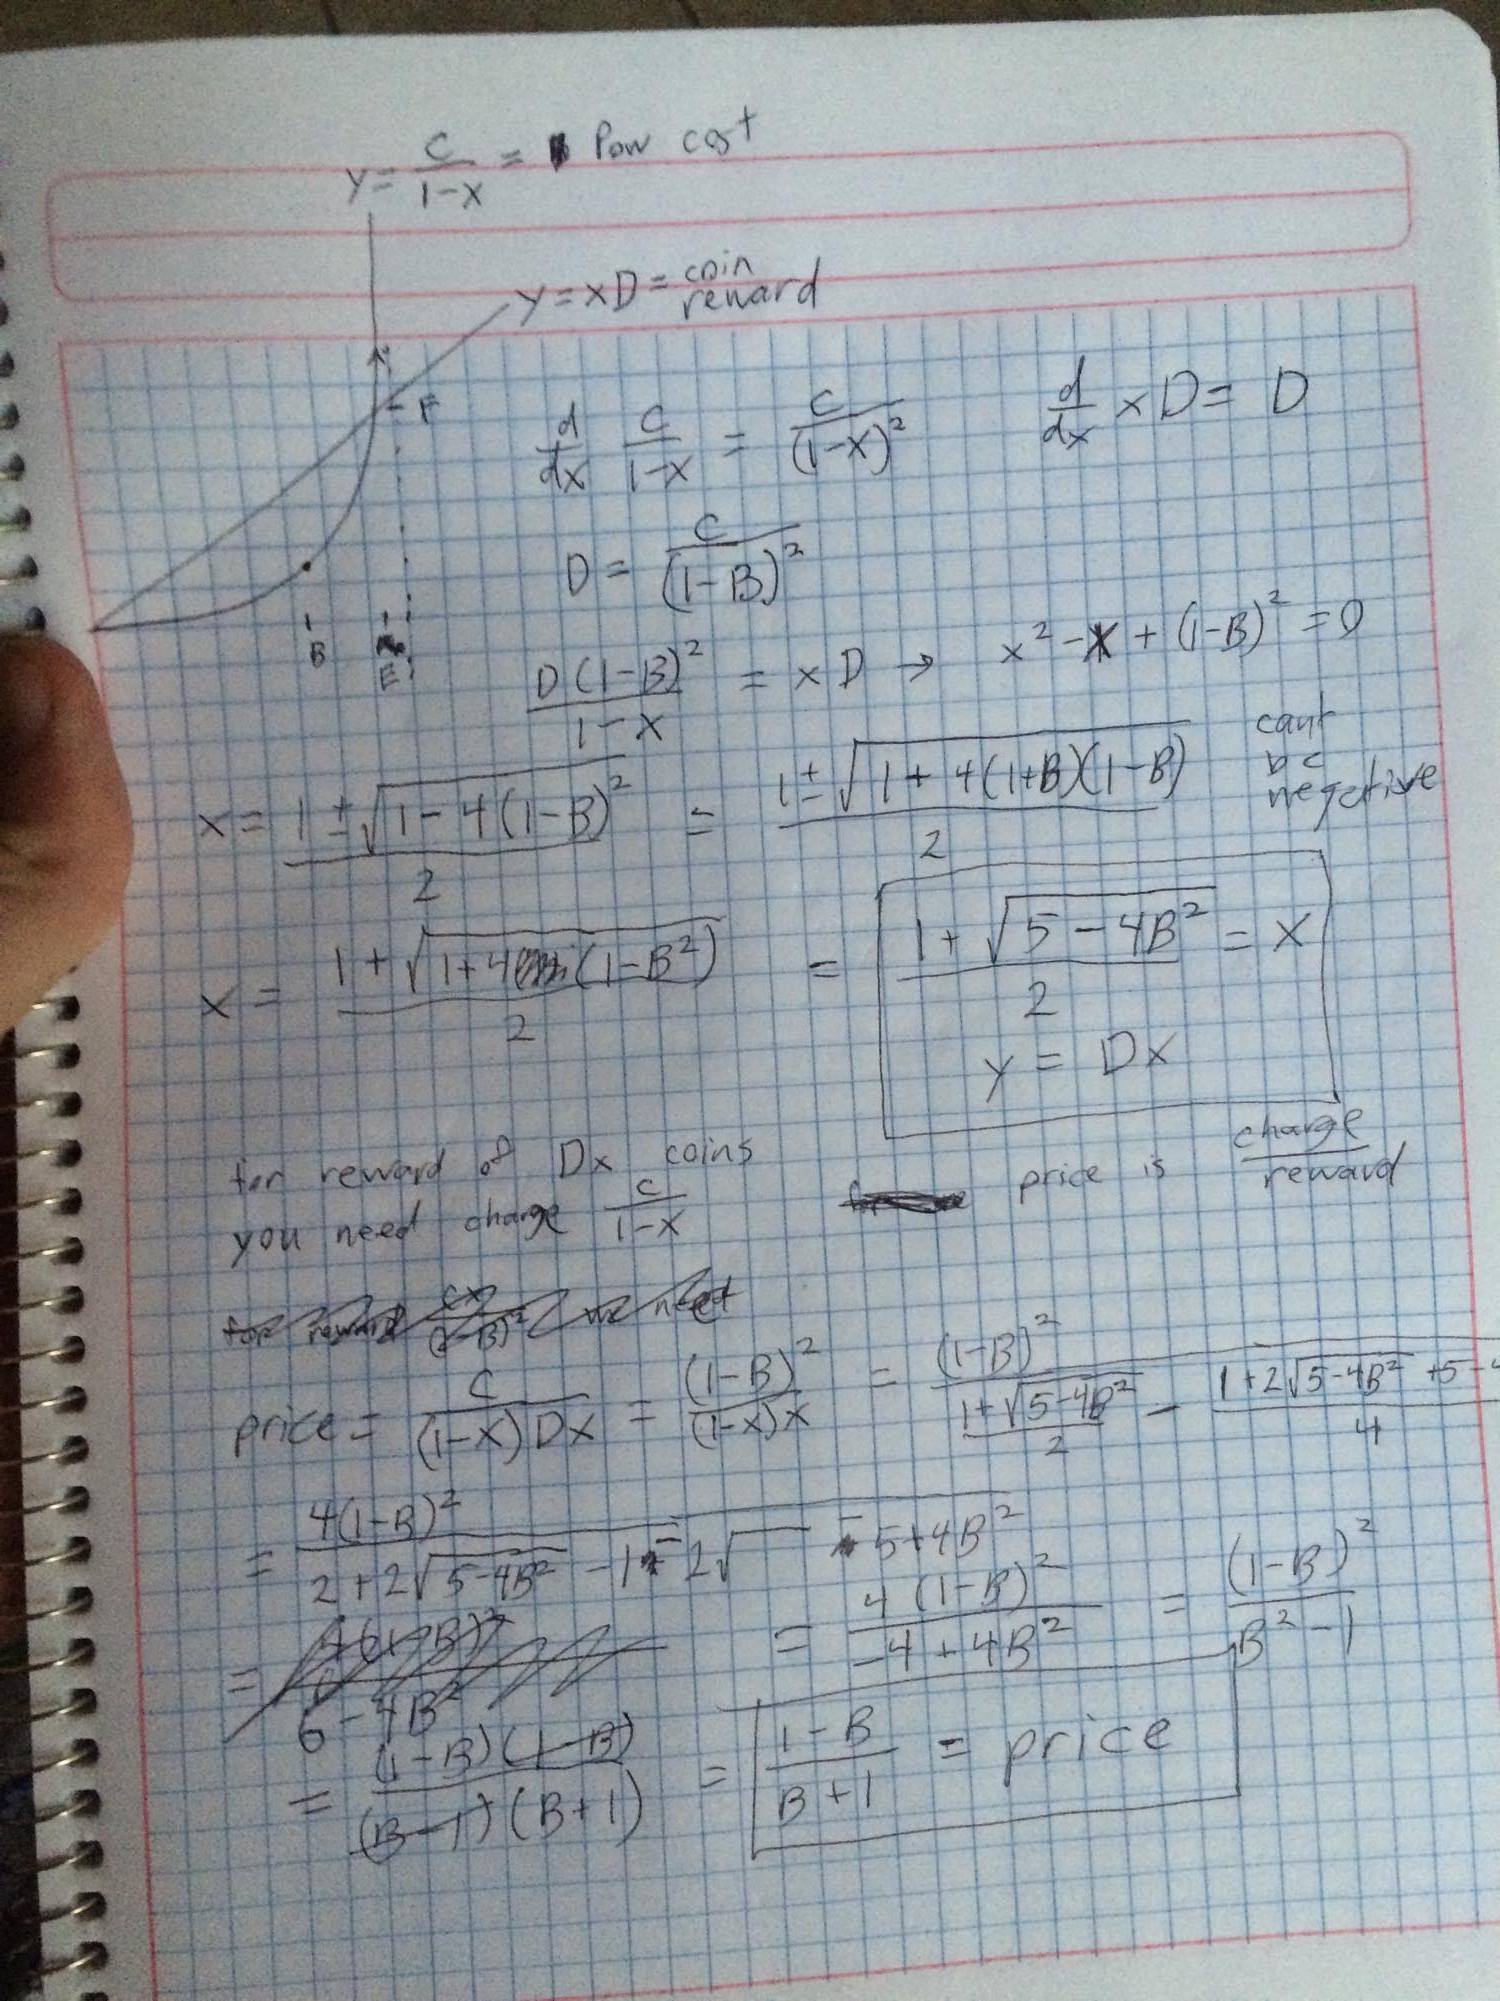 y = C/(1-x) = Pow cost
y = xD = coin reward
F
B
E
d/dx C/(1-x) = C/(1-x)²
d/dx xD = D
D = C/(1-B)²
D(1-B)²/(1-x) = xD → x² - x + (1-B)² = 0
x = (1 ± √(1 - 4(1-B)²))/2 = (1 ± √(1 + 4(1+B)(1-B)))/2
cant
be
negative
x = (1 + √(1+4(1-B²)))/2 = (1 + √(5 - 4B²))/2 = x
y = Dx
for reward of Dx coins
you need charge C/(1-x)
price is charge/reward
for reward Cx/(1-B)² we need
price = C/((1-x)Dx) = (1-B)²/((1-x)x) = (1-B)²/((1+√(5-4B²))/2 - (1+2√(5-4B²)+5-4
/4
= 4(1-B)²/(2+2√(5-4B²) - 1 - 2√ - 5+4B²
= 4(1-B)²/(-4+4B²) = (1-B)²/(B²-1)
6-4B²
= (1-B)(1-B)/((B-1)(B+1)) = (1-B)/(B+1) = price